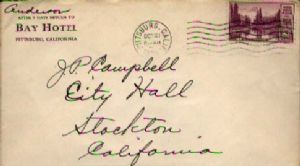 Anderson
AFTER 5 DAYS RETURN TO
BAY HOTEL
PITTSBURG, CALIFORNIA
PITTSBURG, CALIF.
OCT
J.P. Campbell
City Hall
Stockton
California